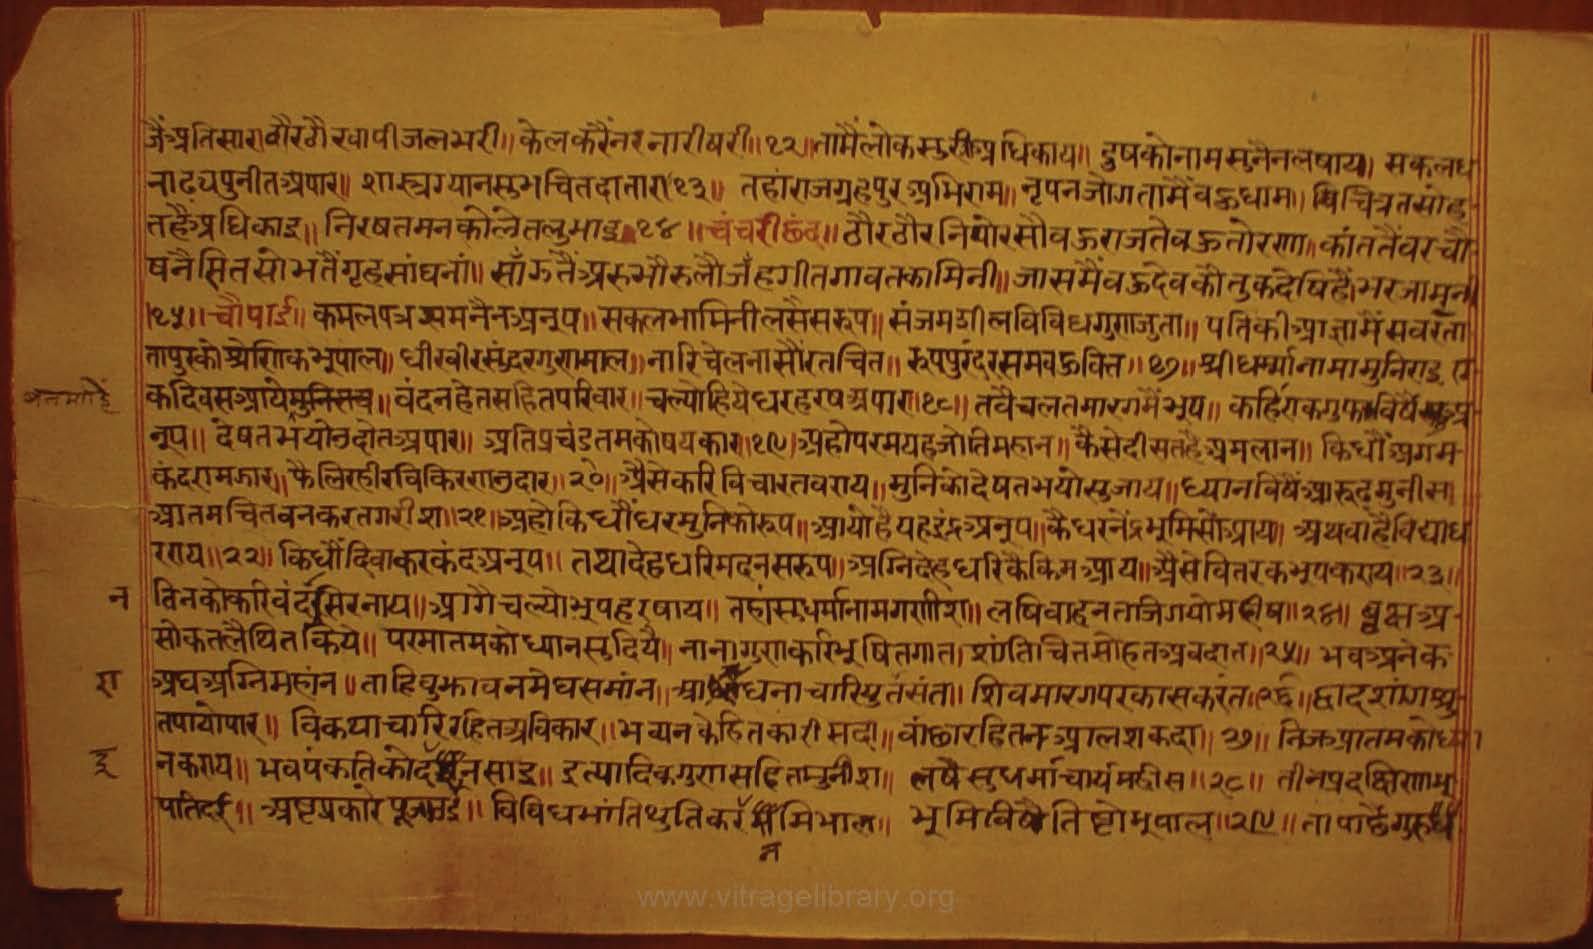 जैंअतिसारा ठौरठौरवापीजलभरी॥ केलकरैंनरनारीषरी॥१२॥ तामैंलोकसुषीअधिकाय॥ दुषकोनामसुनैनलषाय॥ सकलध
नाढ्यपुनीतअपार॥ शास्त्रग्यानसुभचितदातार॥१३॥ तहांराजग्रहपुरअभिराम॥ नृपनजोगतामैंवऊधाम॥ विचित्रतसोह
तहैअधिकाइ॥ निरषतमनकोलेतलुभाइ॥१४॥ चंचरीछंद॥ ठौरठौरनियोरसौवऊराजतेवऊतोरणा॥ कांततैंवरचौ
षनैसितसोभतैंगृहसांघनां॥ साँऊतैंअरुभौरुलौजँहगीतगावतकामिनी॥ जासमैंवऊदेवकौतुकदेषिहैं
॥१५॥ चौपाई॥ कमलपत्रसमनैनअनूप॥ सकलभामिनीलसैसरूप॥ संजमशीलविविधगुणजुता॥ पतिकीआज्ञामैं
तापुरकोश्रेणिकभूपाल॥ धीरवीरसुंदरगुणमाल॥ नारिचेलनासौंरतचित॥ रूपपुरंदरसमवऊवित्त॥१७॥ श्रीधर्म्मानामामुनिराइ ए
कदिवसआये वंदनहेतसहितपरिवार॥ चल्योहियेधरहरषअपार॥१८॥ तवैचलतमारगमैंभूप॥ कहिंएकगुफा अ
नूप॥ देषतभयोउदोतअपार॥ अतिप्रचंडतमकोषयकार॥१९॥ अहोपरमयहजोतिमहान॥ कैसेदीसतहैअमलान॥ किधौंअगम
कंदरामजार॥ फैलिरहीरविकिरणउदार॥२०॥ अैसेकरिविचारतवराय॥ मुनिकोदेषतभयोसुजाय॥ ध्यानविषैंआरूढमुनीस॥
आतमचितवनकरतगरीश॥२१॥ अहोकिधौंधरमुनिकोरूप॥ आयोहैयहइंद्रअनूप॥ कैधरनेंद्रभूमिसोंआय॥ अथवाहैविद्याध
रराय॥२२॥ किधौंदिवाकरकंदअनूप॥ तथादेहधरिमदनसरूप॥ अग्निदेहधरिकैकिमआय॥ अैसेवितरकभूपकराय॥२३॥
न
तिनकोकरिवंदसिरनाय॥ आगैचल्योभूपहरषाय॥ तहांसुधर्मानामगणीश॥ लषिवाहनतजिगयोमहीष॥२४॥ वृक्षअ
सोकतलैथितकिये॥ परमातमकोध्यानसुदिये॥ नानागुणकरिभूषितगात॥ शांतिचितसोहतअवदात॥२५॥ भवअनेक
अघअग्निमहांन॥ ताहिवुझावनमेघसमांन॥ शिवमारगपरकासकरंत॥२६॥ द्वादशांगश्रु
तपायोपार॥ विकथाचारिरहितअविकार॥ भव्यनकेहितकारीसदा॥ वांछारहितनआलशकदा॥२७॥ निजआतमकोध्या
नकराय॥ भवपंकतिको इत्यादिकगुणसहितमुनीश॥ लषैसुधर्माचार्यमहीस॥२८॥ तीनप्रदक्षिणाभू
पतिदई॥ अष्टप्रकार विविधभांतिथुतिकर भूमिविषैतिष्टोभूपाल॥२९॥ तापाछैगुरुध
न